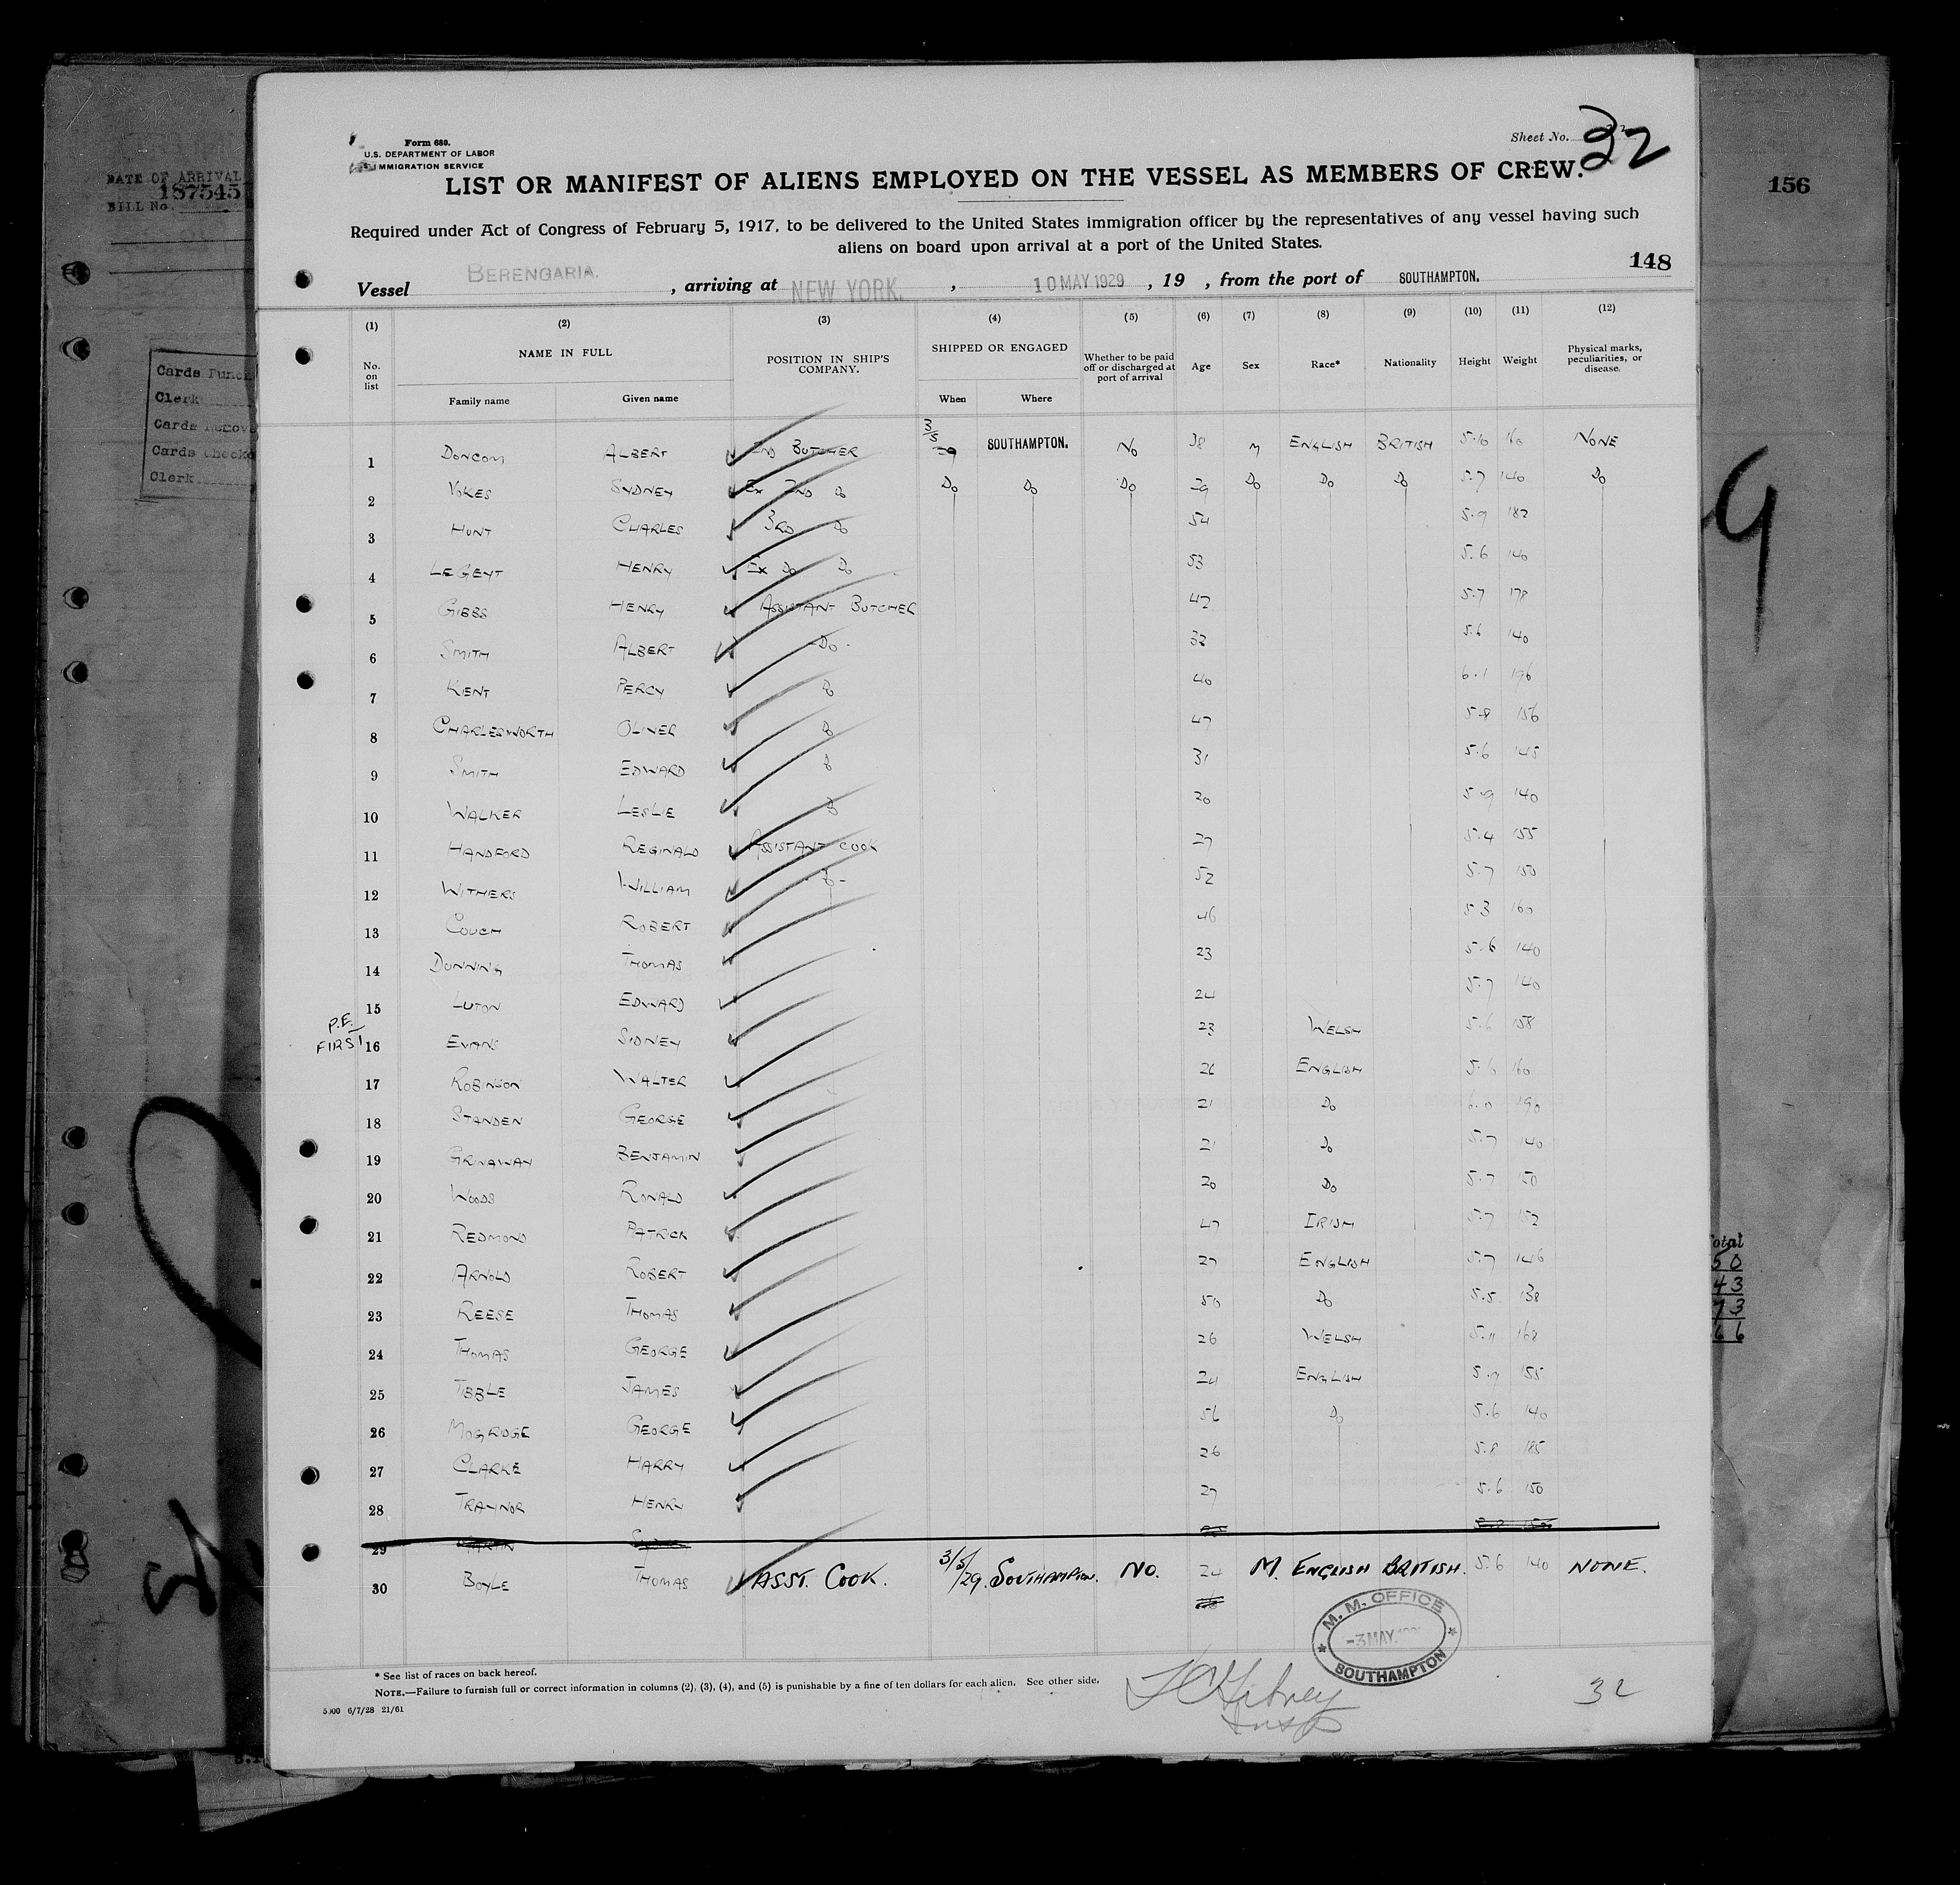 DATE OF ARRIVAL
1875451
BILL No.
Cards Punch
Clerk
Cards Remove
Cards Checke
Clerk
156
Form 680.
U.S. DEPARTMENT OF LABOR
IMMIGRATION SERVICE
Sheet No. 32
LIST OR MANIFEST OF ALIENS EMPLOYED ON THE VESSEL AS MEMBERS OF CREW.
Required under Act of Congress of February 5, 1917, to be delivered to the United States immigration officer by the representatives of any vessel having such
aliens on board upon arrival at a port of the United States.
148
Vessel BERENGARIA. , arriving at NEW YORK. , 10 MAY 1929 , 19 , from the port of SOUTHAMPTON.
(1) (2) (3) (4) (5) (6) (7) (8) (9) (10) (11) (12)
No. on list NAME IN FULL POSITION IN SHIP'S COMPANY. SHIPPED OR ENGAGED Whether to be paid off or discharged at port of arrival Age Sex Race* Nationality Height Weight Physical marks, peculiarities, or disease.
Family name Given name When Where
1 DONCOM ALBERT 2ND BUTCHER 3/5 29 SOUTHAMPTON. No 38 M ENGLISH BRITISH 5.10 160 NONE
2 VOKES SYDNEY Ex 2ND Do Do Do Do 29 Do Do Do 5.7 140 Do
3 HUNT CHARLES 3RD Do 54 5.9 182
4 LEGEYT HENRY Ex Do Do 53 5.6 140
5 GIBBS HENRY ASSISTANT BUTCHER 47 5.7 178
6 SMITH ALBERT Do 33 5.6 140
7 KENT PERCY Do 40 6.1 196
8 CHARLESWORTH OLIVER Do 47 5.8 156
9 SMITH EDWARD Do 31 5.6 145
10 WALKER LESLIE Do 20 5.9 140
11 HANDFORD REGINALD ASSISTANT COOK 27 5.4 155
12 WITHERS WILLIAM Do 52 5.7 150
13 COUCH ROBERT 46 5.3 160
14 DUNNING THOMAS 23 5.6 140
15 LUTON EDWARD 24 5.7 140
P.E. FIRST 16 EVANS SIDNEY 23 WELSH 5.6 158
17 ROBINSON WALTER 26 ENGLISH 5.10 160
18 STANDEN GEORGE 21 Do 6.0 190
19 GRINAWAY BENJAMIN 21 Do 5.7 140
20 WOODS RONALD 20 Do 5.7 150
21 REDMOND PATRICK 47 IRISH 5.7 152
22 ARNOLD ROBERT 27 ENGLISH 5.7 146
23 REESE THOMAS 50 Do 5.5 138
24 THOMAS GEORGE 26 WELSH 5.11 168
25 TIBBLE JAMES 24 ENGLISH 5.9 155
26 MOGRIDGE GEORGE 56 Do 5.6 140
27 CLARKE HARRY 26 5.8 185
28 TRAYNOR HENRY 27 5.6 150
29
30 BOYLE THOMAS ASST. COOK. 3/5/29. SOUTHAMPTON. NO. 24 M. ENGLISH BRITISH. 5.6 140 NONE.
M. M. OFFICE
-3 MAY
SOUTHAMPTON
* See list of races on back hereof.
NOTE.—Failure to furnish full or correct information in columns (2), (3), (4), and (5) is punishable by a fine of ten dollars for each alien. See other side.
5000 6/7/28 21/61
Insp
32
9
Total
50
43
73
66